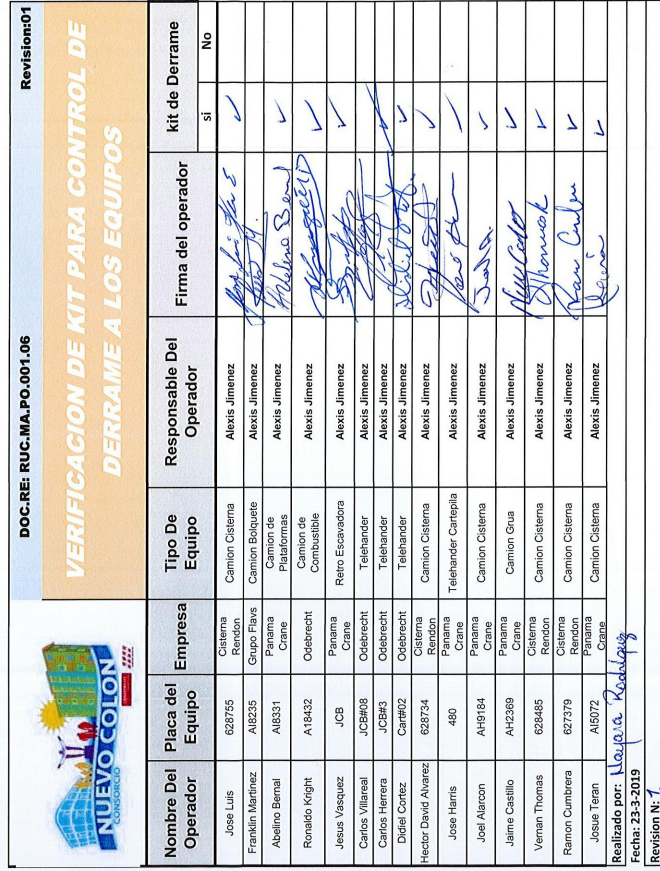 DOC.RE: RUC.MA.PO.001.06 Revision:01
NUEVO COLON
CONSORCIO
VERIFICACION DE KIT PARA CONTROL DE
DERRAME A LOS EQUIPOS
Nombre Del Operador Placa del Equipo Empresa Tipo De Equipo Responsable Del Operador Firma del operador kit de Derrame
si No
Jose Luis 628755 Cisterna Rendon Camion Cisterna Alexis Jimenez
Franklin Martinez AI8235 Grupo Flavs Camion Bolquete Alexis Jimenez
Abelino Bernal AI8331 Panama Crane Camion de Plataformas Alexis Jimenez Abdelino Bernal
Ronaldo Knight A18432 Odebrecht Camion de Combustible Alexis Jimenez
Jesus Vasquez JCB Panama Crane Retro Escavadora Alexis Jimenez
Carlos Villareal JCB#08 Odebrecht Telehander Alexis Jimenez
Carlos Herrera JCB#3 Odebrecht Telehander Alexis Jimenez
Didiel Cortez Cart#02 Odebrecht Telehander Alexis Jimenez
Hector David Alvarez 628734 Cisterna Rendon Camion Cisterna Alexis Jimenez
Jose Harris 480 Panama Crane Telehander Cartepila Alexis Jimenez
Joel Alarcon AH9184 Panama Crane Camion Cisterna Alexis Jimenez
Jaime Castillo AH2369 Panama Crane Camion Grua Alexis Jimenez
Vernan Thomas 628485 Cisterna Rendon Camion Cisterna Alexis Jimenez
Ramon Cumbrera 627379 Cisterna Rendon Camion Cisterna Alexis Jimenez
Josue Teran AI5072 Panama Crane Camion Cisterna Alexis Jimenez
Realizado por: Nayara Rodríguez
Fecha: 23-3-2019
Revision N: 1